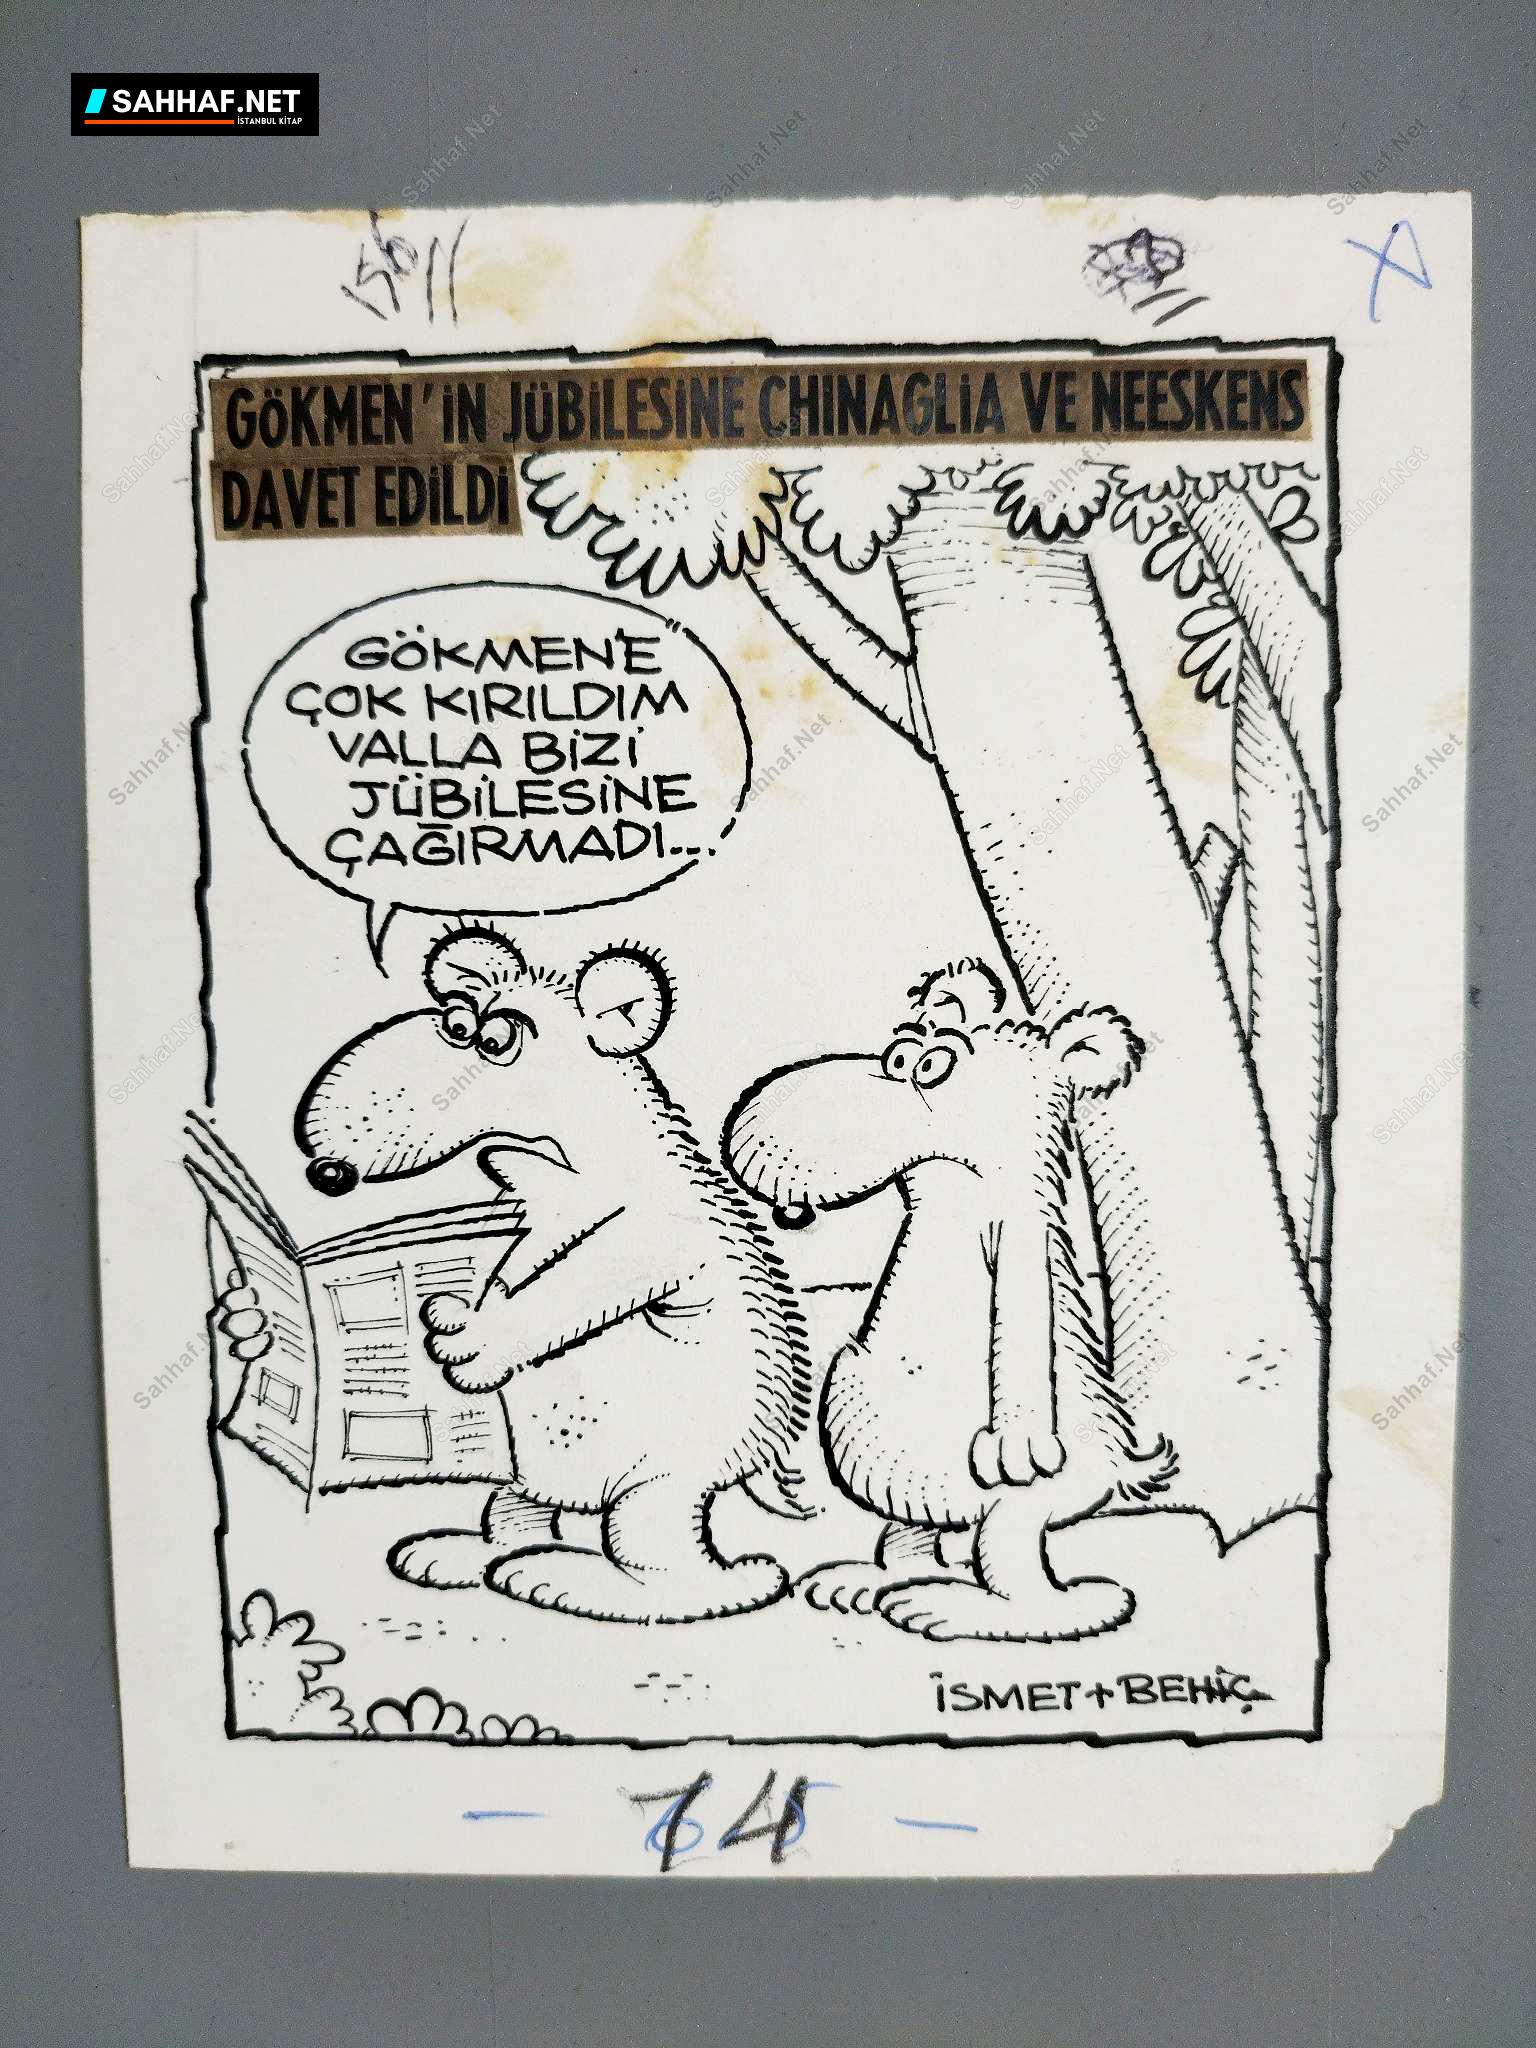 SAHHAF.NET
İSTANBUL KİTAP
15b 11
GÖKMEN'İN JÜBİLESİNE CHINAGLİA VE NEESKENS
DAVET EDİLDİ
GÖKMEN'E
ÇOK KIRILDIM
VALLA BİZİ
JÜBİLESİNE
ÇAĞIRMADI...
İSMET+BEHİÇ
74